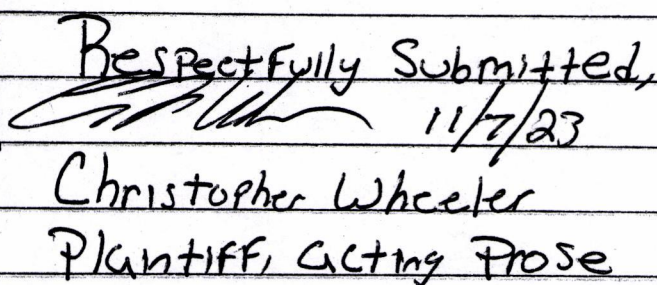 Respectfully Submitted,
11/7/23
Christopher Wheeler
Plantiff, acting Prose